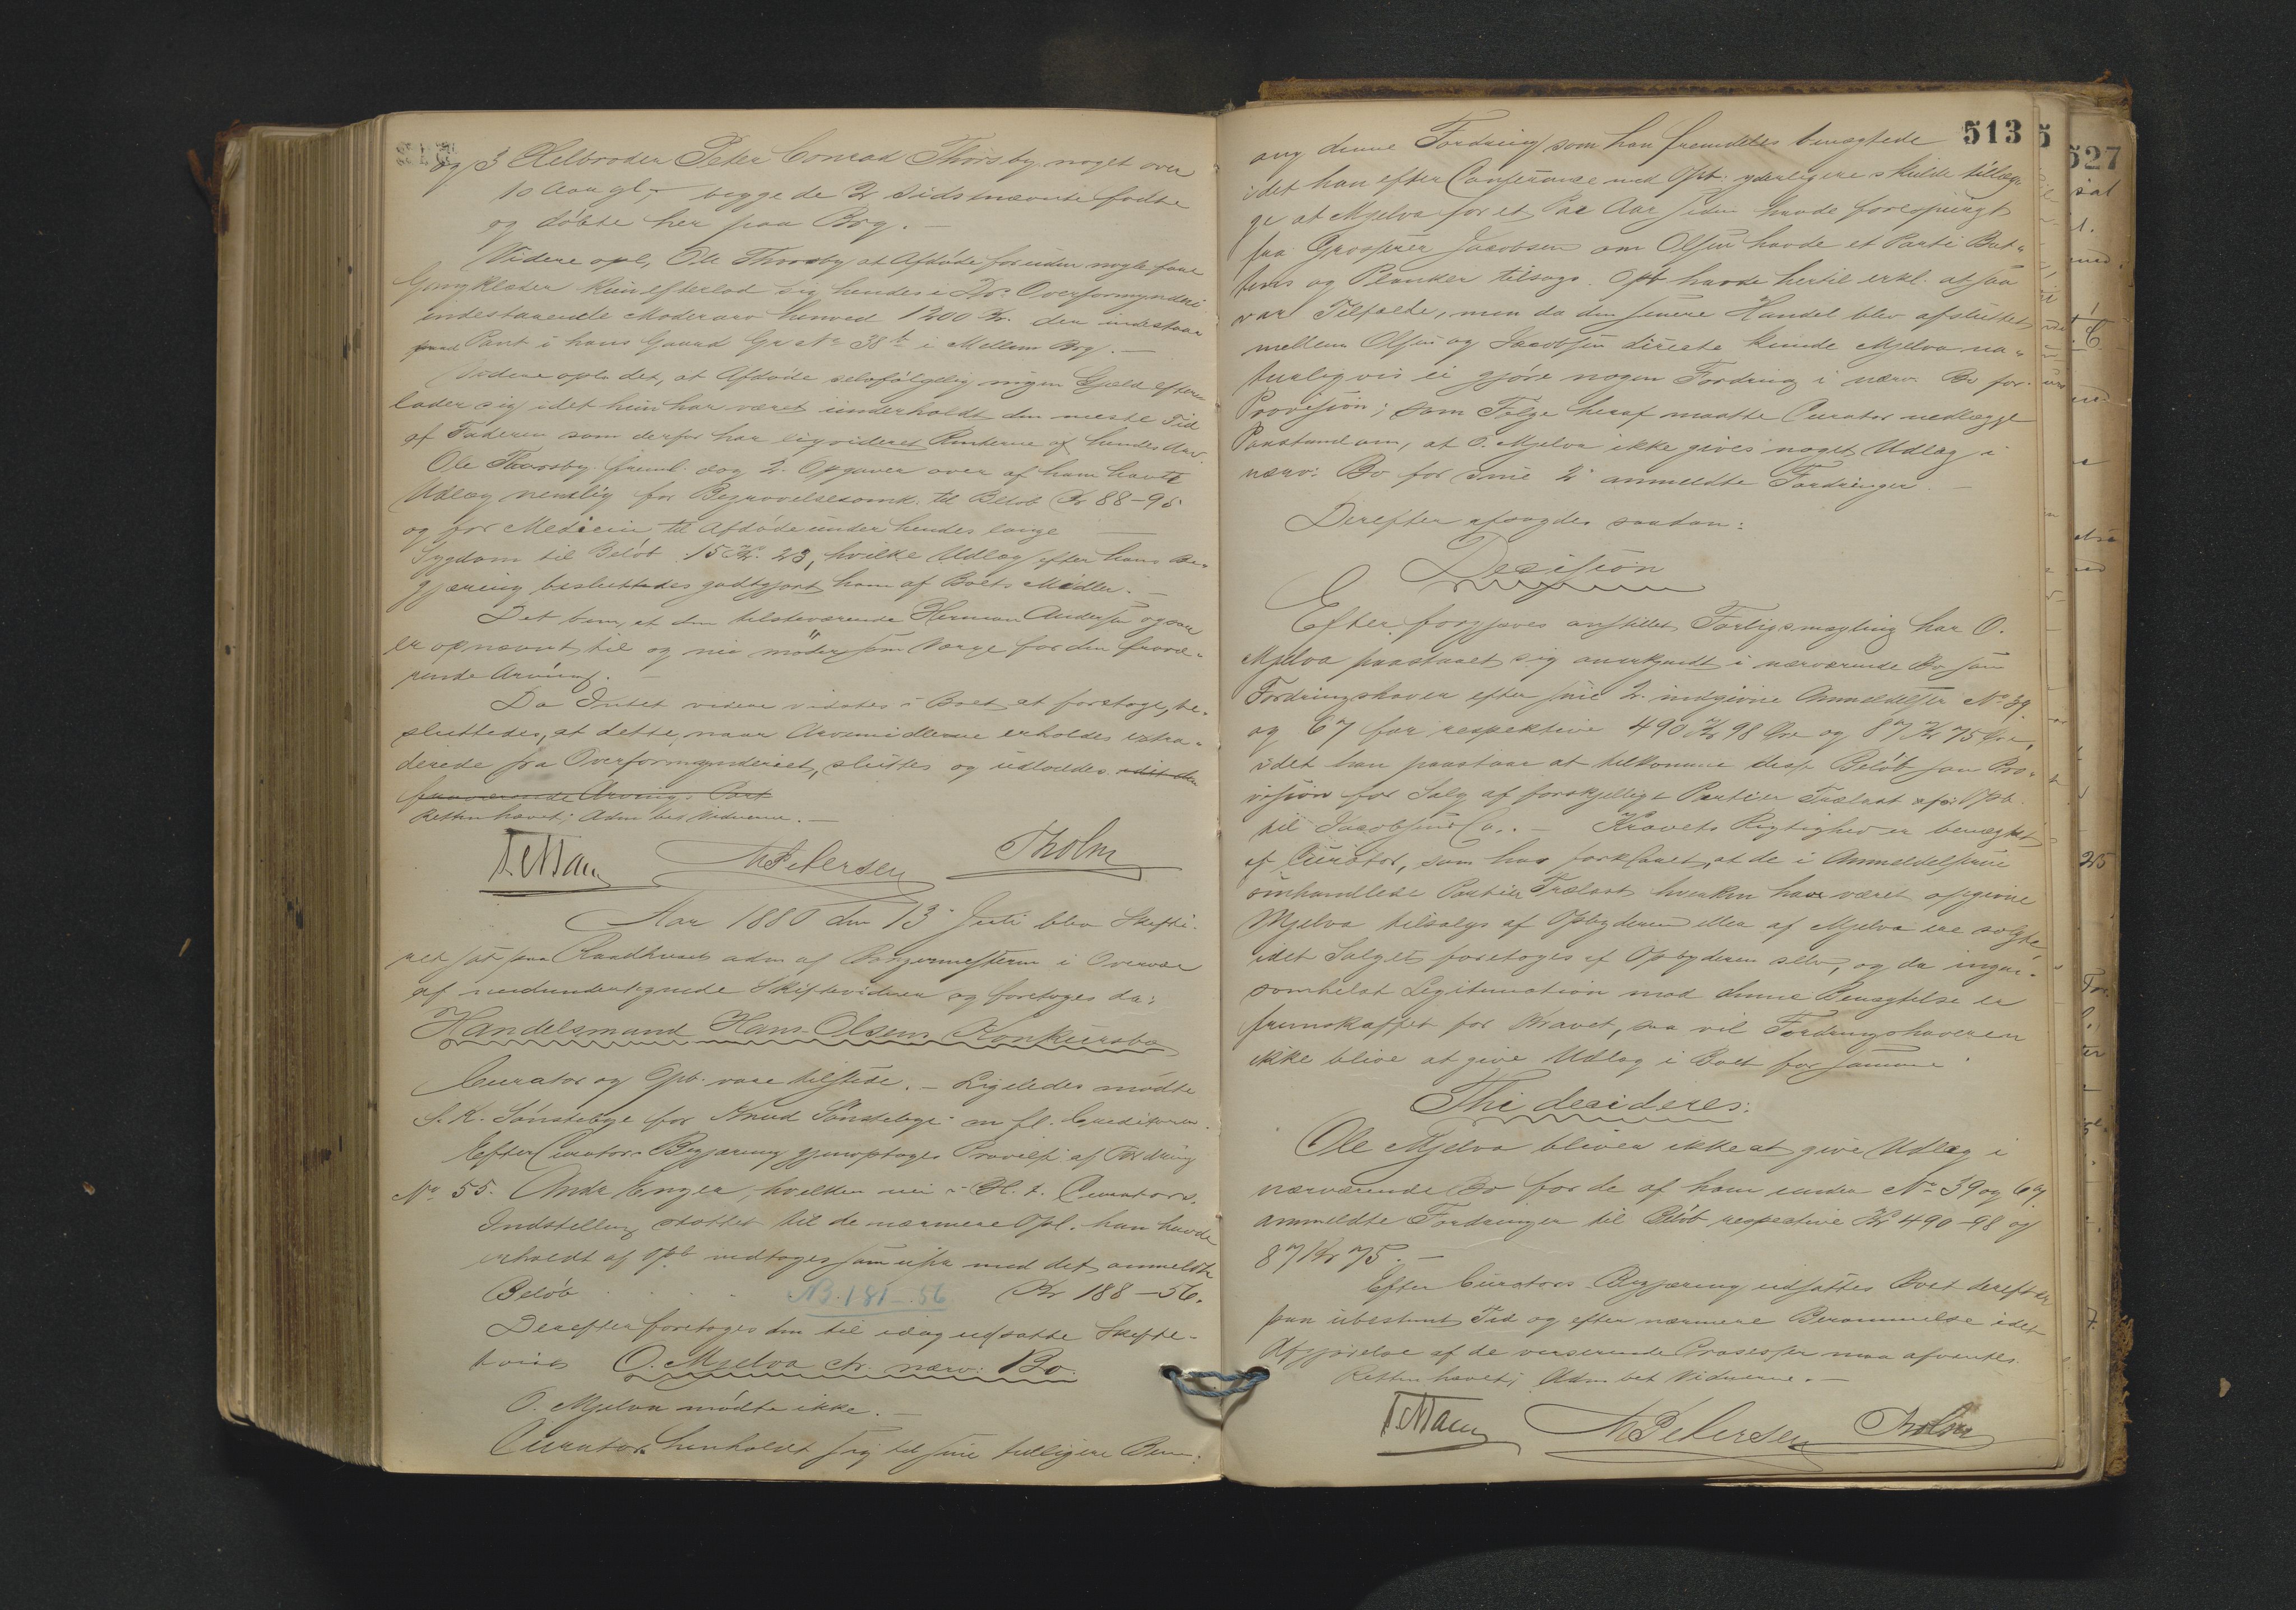 og 3 Helbroder Peter Conrad Thorsby, noget over
10 Aar gl., begge de 2 sidstnævnte fødte
og døbte her paa Brg. —
Videre opl. Ole Thorsby at Afdøde foruden nogle faae
Gangklæder kun efterlod sig hendes i Dr. Overformynderi
indestaaende Mødrearv henved 1200 Kr. der indestaar
Pant i hans Gaard Gr No 38 b i Mellem Brg. —
Videre opl. det, at Afdøde selvfølgelig ingen Gjæld efter
lader sig idet hun har været underholdt den meste Tid
af Faderen som derfor har liqvideret Renterne af hendes Arv.
Ole Thorsby freml. dog 2 Opgaver over af ham havte
Udlæg nemlig for Begravelsesomk. til Beløb Kr 88-95
og for Medicin til Afdøde under hendes lange
Sygdom til Beløb 15 Kr. 23, hvilke Udlæg efter hans Be-
gjæring besluttedes godtgjort ham af Boets Midler. —
Det bem. at den tilstedeværende Herman Andersen ogsaa
er opnævnt til og nu møder som Værge for den fravæ-
rende Arving. —
Da Intet videre vidstes i Boet at foretage, be-
sluttedes, at dette, naar Arvemidlerne erholdes extra-
derede fra Overformynderiet, sluttes og udloddes idet den
fraværende Arvings Part
Retten hævet; Adm bet Vidnerne. —
M Petersen Tholm
Aar 1880 den 13 Juli blev Skifte-
ret sat paa Raadhuset adm af Borgermesteren i Overvær
af medundertegnede Skiftevidner og foretoges da:
Handelsmand Hans Olsens Konkursbo
Curator og Opb. vare tilstede. — Ligeledes mødte
S. K. Sønstebye for Knud Sønstebye m fl. Creditorer.
Efter Curators Begjæring gjenoptoges Prøvelse af Fordring
No 55. Andr Enger, hvilken nu i H. t. Curators
Indstilling støttet til de nærmere Opl. han havde
erholdt af Opb. vedtoges som upr. med det anmeldte
Beløb . . . . NB. 181-56 Kr 188-56.
Derefter foretoges den til idag udsatte Skifte-
tvist O. Mjelva ctr. nærv. Bo.
O. Mjelva mødte ikke. —
Curator henholdt sig til sine tidligere Bem.
513
ang denne Fordring som han fremdeles benægtede
idet han efter Conferance med Opb. yderligere skulde tillæg-
ge at Mjelva for et Par Aar siden havde forespurgt
fra Grosserer Jacobsen om Olsen havde et Parti Bat-
tens og Planker tilsags. Opb havde hertil erkl. at saa
var Tilfælde, men da den senere Handel blev afsluttet
mellem Olsen og Jacobsen directe kunde Mjelva na-
turligvis ei gjøre nogen Fordring i nærv. Bo for
Provision; som Følge heraf maatte Curator nedlægge
Paastand om, at O. Mjelva ikke gives noget Udlæg i
nærv. Bo for sine 2 anmeldte Fordringer. —
Derefter afsagdes saadan:
Decision
Efter forgjæves anstillet Forligsmægling har O.
Mjelva paastaaet sig anerkjendt i nærværende Bo som
Fordringshaver efter sine 2 indgivne Anmeldelser No 39
og 67 for respektive 490 Kr 98 Øre og 87 Kr 75 Øre,
idet han paastaar at tilkomme disse Beløb som Pro-
vision for Salg af forskjellige Partier Trælast af Opb.
til Jacobsen & Co. — Kravets Rigtighed er benægtet
af Curator, som har forklaret, at de i Anmeldelserne
omhandlede Partier Trælast hverken have været opgivne
Mjelva tilsalgs af Opbyderen eller af Mjelva ere solgte,
idet Salget foretoges af Opbyderen selv, og da ingen-
somhelst Legitimation mod denne Benægtelse er
fremskaffet for Kravet, saa vil Fordringshaveren
ikke blive at give Udlæg i Boet for samme.
Thi decideres:
Ole Mjelva bliver ikke at give Udlæg i
nærværende Bo for de af ham under No 39 og 67
anmeldte Fordringer til Beløb respective Kr 490-98 og
87 Kr 75. —
Efter Curators Begjæring udsattes Boet derefter
paa ubestemt Tid og efter nærmere Berammelse idet
Afgjørelse af de verserende Processer maa afventes.
Retten hævet; Adm bet Vidnerne. —
M Petersen Tholm
527